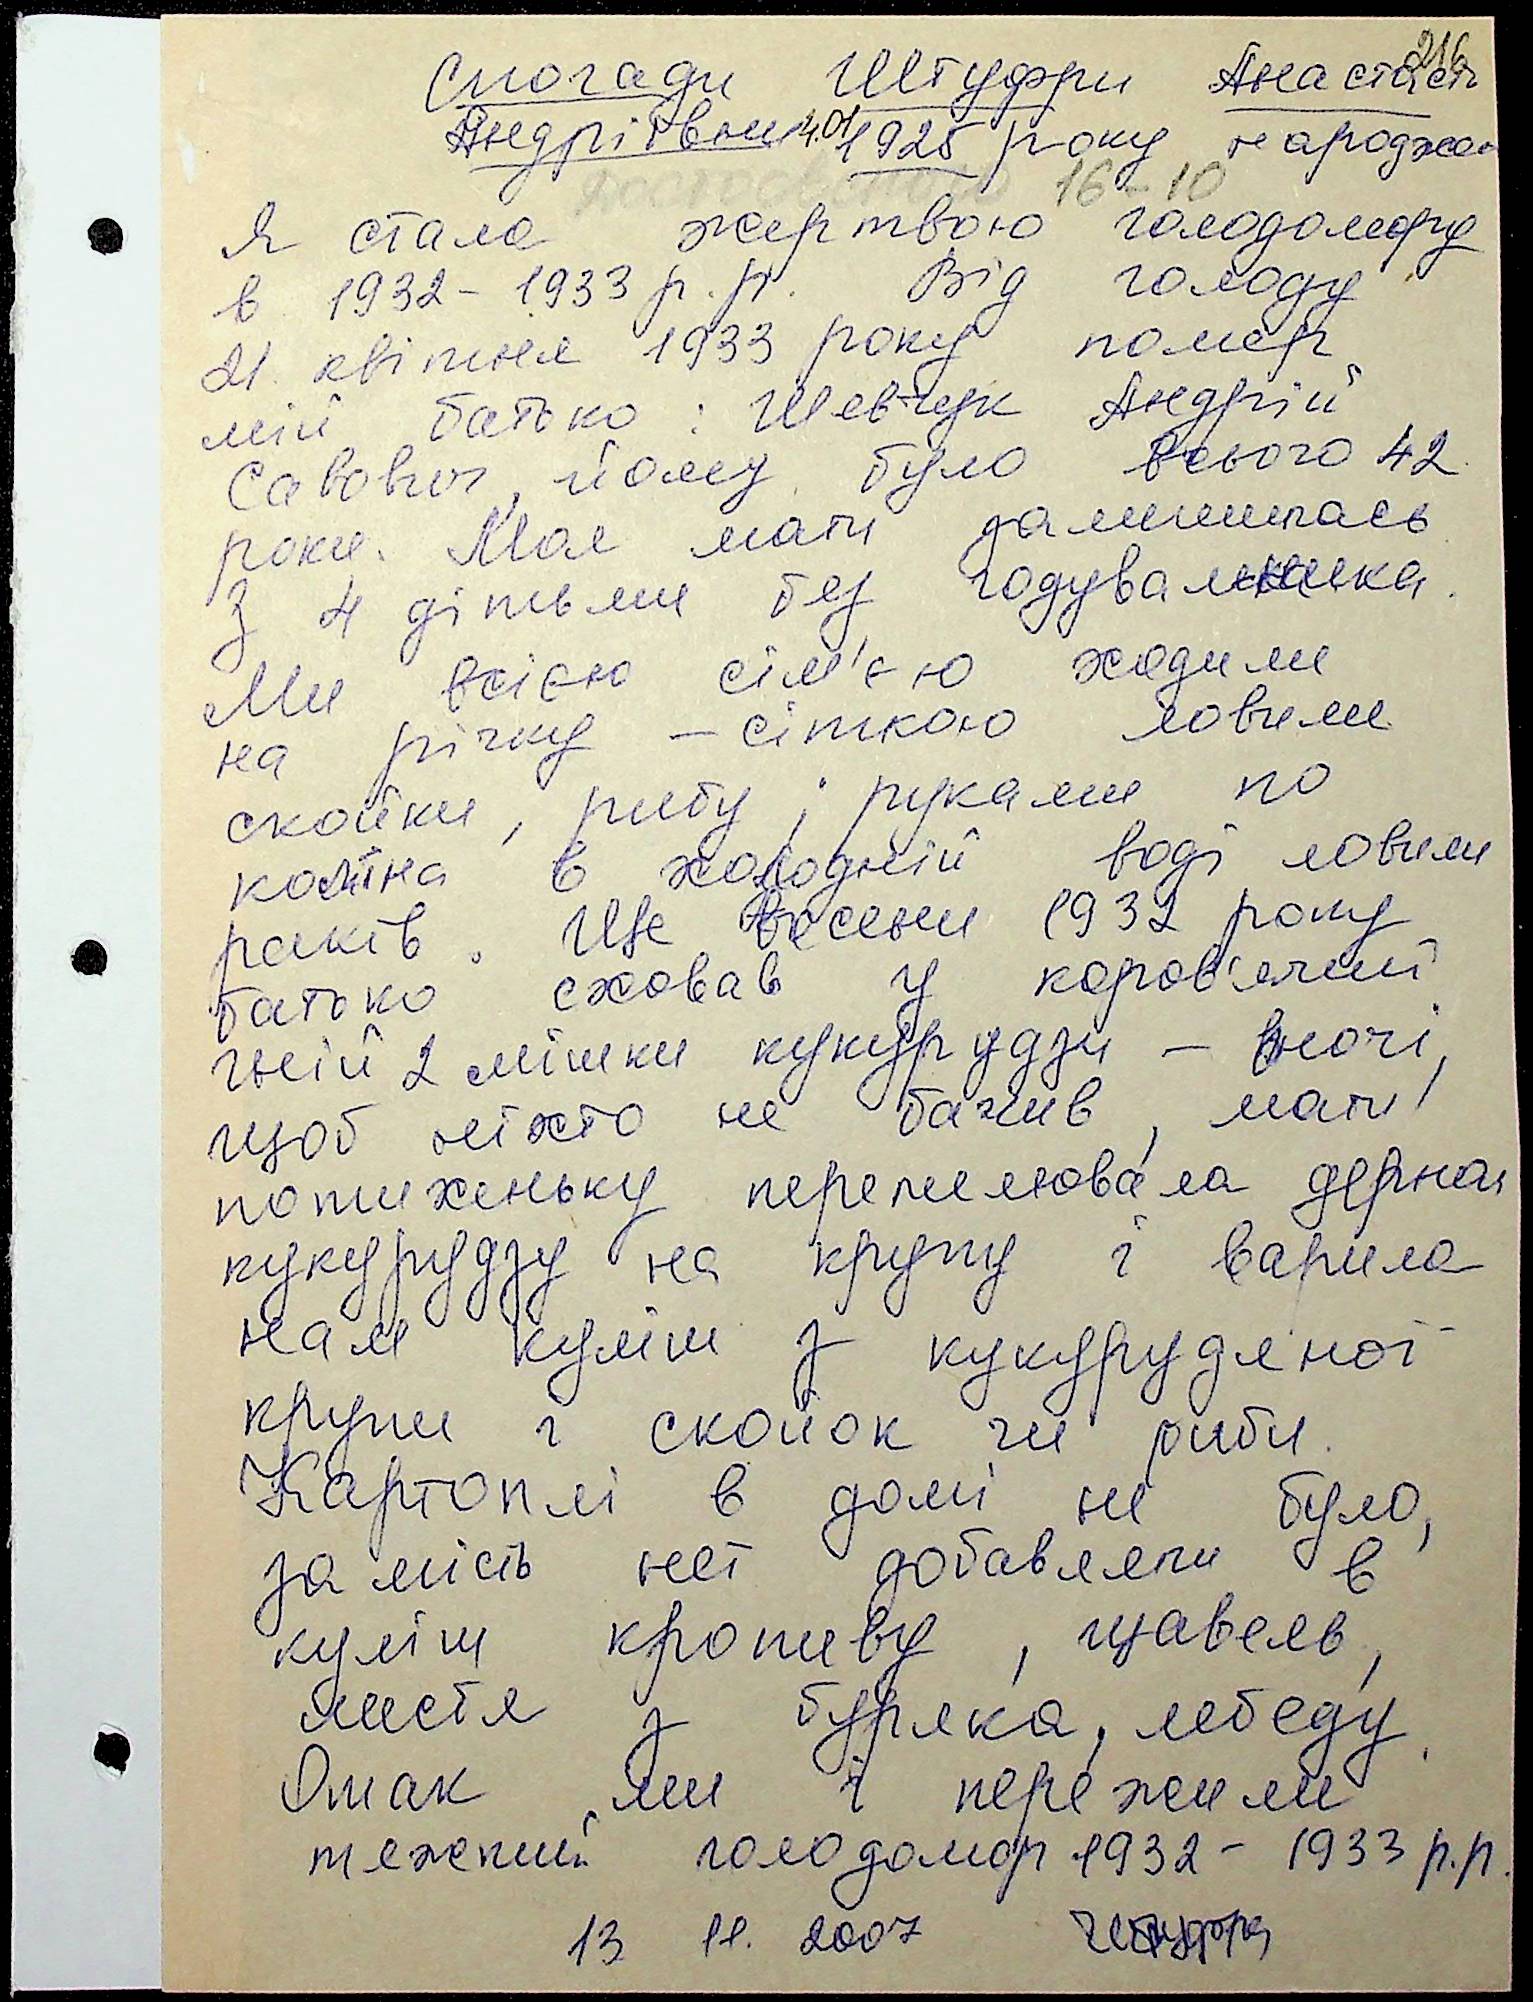 216
Спогади Штуфри Анастасії
Андріївни 4.01 1925 року народжен
16-10
Я стала жертвою голодомору
в 1932-1933 р.р. Від голоду
21 квітня 1933 року помер
мій батько: Шевчук Андрій
Савович, йому було всього 42
роки. Моя мати залишилась
з 4 дітьми без годувальника.
Ми всією сім'єю ходили
на річку - сіткою ловили
скойки, рибу; руками по
коліна в холодній воді ловили
раків. Ще восени 1932 року
батько сховав у коров'ячий
гній 2 мішки кукурудзи - вночі,
щоб ніхто не бачив, мати
потихеньку перемелювала дерном
кукурудзу на крупу і варила
нам куліш з кукурудяної
крупи і скойок чи риби.
Картоплі в домі не було,
замість неї добавляли в
куліш кропиву, щавель,
листя з буряка, лебеду.
Отак ми і пережили
тяжкий голодомор 1932-1933 р.р.
13 11. 2007 Штуфра